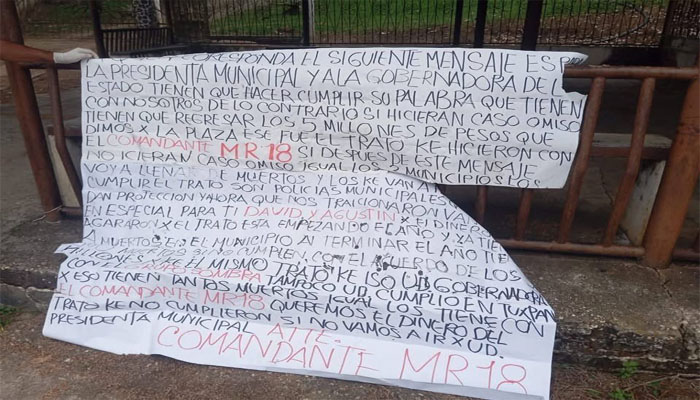 RESPONDA EL SIGUIENTE MENSAJE ES P
LA PRESIDENTA MUNICIPAL Y A LA GOBERNADORA DEL
ESTADO TIENEN QUE HACER CUMPLIR SU PALABRA QUE TIENEN
CON NOSOTROS DE LO CONTRARIO SI HICIERAN CASO OMISO
TIENEN QUE REGRESAR LOS MILLONES DE PESOS QUE
DIMOS X LA PLAZA ESE FUE EL TRATO KE HICIERON CON
EL COMANDANTE MR18 SI DESPUES DE ESTE MENSAJE
NO ICIERAN CASO OMISO IGUAL LOS MUNICIPIOS LOS
VOY A LLENAR DE MUERTOS Y LOS KE VAN A
CUMPLIR EL TRATO SON POLICIAS MUNICIPALES
DAN PROTECCION Y AHORA QUE NOS TRAICIONARON VA
EN ESPECIAL PARA TI DAVID Y AGUSTIN EL DINERO
AGARARON X EL TRATO ESTA EMPEZANDO EL AÑO Y YA TIE
MUERTOS EL MUNICIPIO AL TERMINAR EL AÑO TIE
CUMPLEN CON EL ACUERDO DE LOS
MILLONES EL MISMO TRATO KE ISO UD GOBERNADORA
CON GRUPO SOMBRA TAMPOCO UD CUMPLIO EN TUXPAN
X ESO TIENE TANTOS MUERTOS IGUAL LOS TIENE CON
EL COMANDANTE MR18 QUEREMOS EL DINERO DEL
TRATO KE NO CUMPLIERON SI NO VAMOS A IR X UD.
PRESIDENTA MUNICIPAL ATTE.
COMANDANTE MR18